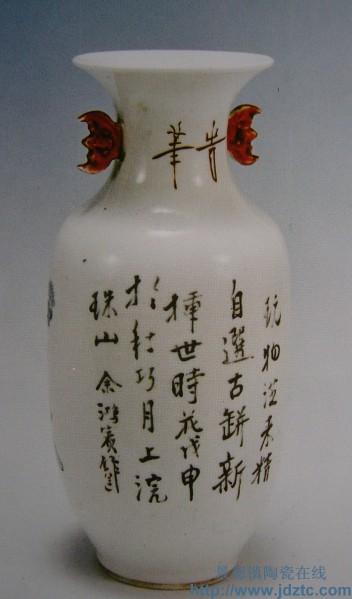 青華
玩物精
自選古缾新
揮世時戊申
於秋巧月上浣
珠山余鴻賓作
景德镇陶瓷在线
http://www.jdztc.com